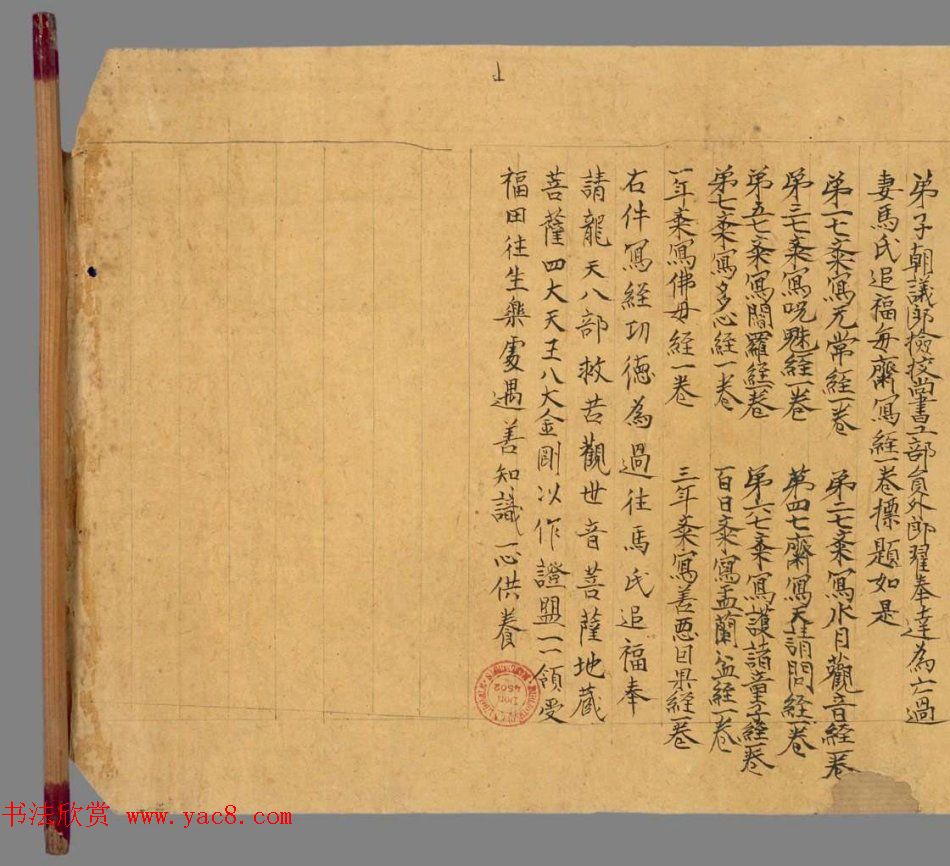 弟子朝議郎檢挍尚書工部員外郎翟奉達為亡過
妻馬氏追福每齋寫經一卷標題如是
弟一七斎寫无常經一卷 弟二七斎寫水月觀音經一卷
弟三七斎寫呪魅經一卷 弟四七齋寫天請問經一卷
弟五七斎寫閻羅經一卷 弟六七斎寫護諸童子經一卷
弟七斎寫多心經一卷 百日斎寫盂蘭盆經一卷
一年斎寫佛母經一卷 三年斎寫善惡因果經一卷
右件寫經功德為過往馬氏追福奉
請龍天八部救苦觀世音菩薩地藏
菩薩四大天王八大金剛以作證盟一一領受
福田往生樂處遇善知識一心供養
DON
4502
书法欣赏 www.yac8.com